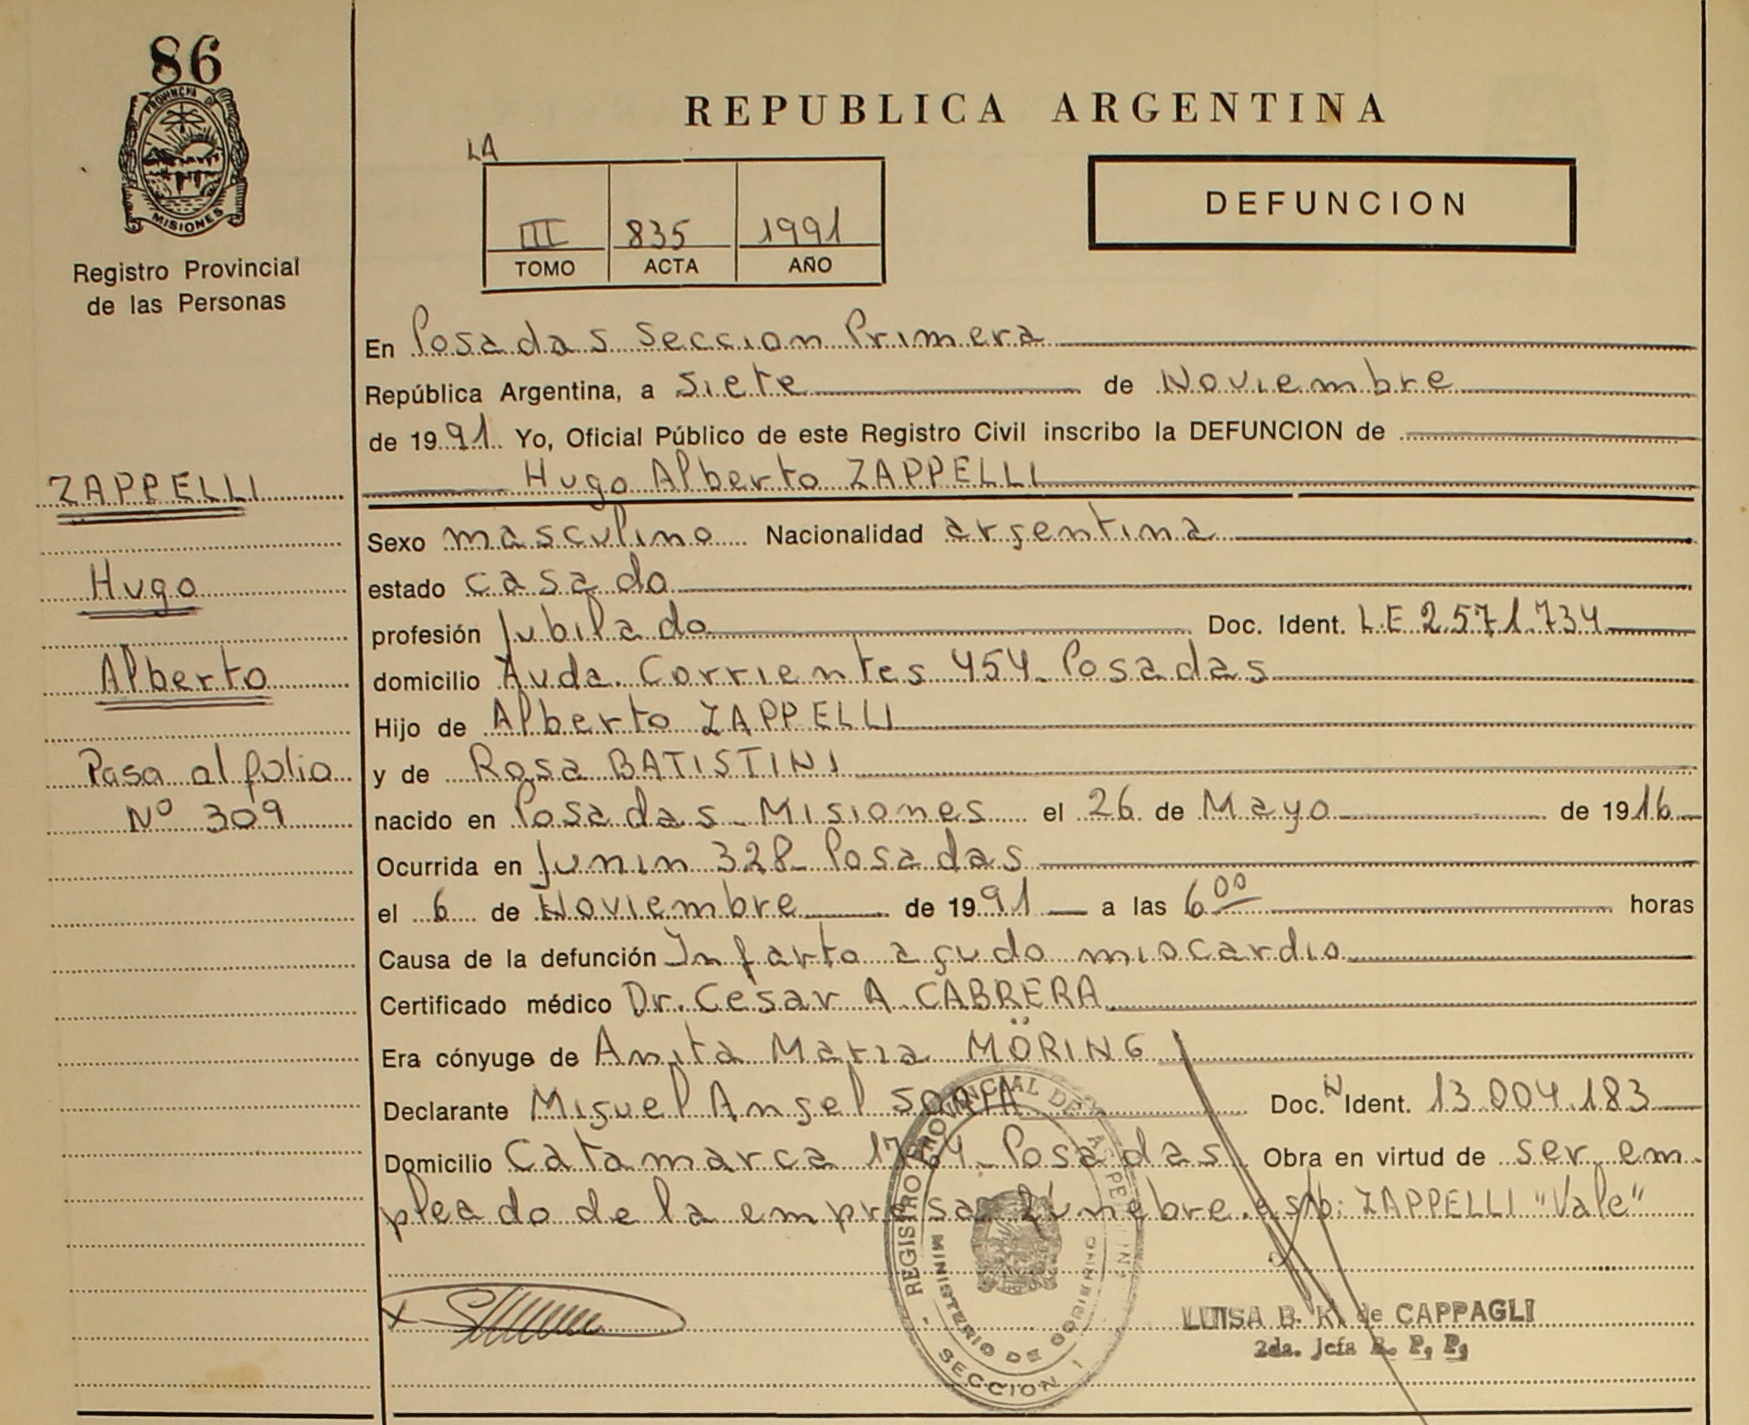 86
PROVINCIA DE
MISIONES
Registro Provincial
de las Personas
REPUBLICA ARGENTINA
LA
III 835 1991
TOMO ACTA AÑO
DEFUNCION
En Posadas Seccion Primera
República Argentina, a Siete de Noviembre
de 1991 Yo, Oficial Público de este Registro Civil inscribo la DEFUNCION de
Hugo Alberto ZAPPELLI
ZAPPELLI
Hugo
Alberto
Pasa al folio
Nº 309
Sexo masculino Nacionalidad argentina
estado casado
profesión Jubilado Doc. Ident. L.E 2.571.734
domicilio Avda. Corrientes 454_Posadas
Hijo de Alberto ZAPPELLI
y de Rosa BATISTINI
nacido en Posadas_Misiones el 26 de Mayo de 1916
Ocurrida en Junin 328_Posadas
el 6 de Noviembre de 1991 a las 6 00 horas
Causa de la defunción Infarto agudo miocardio
Certificado médico Dr. Cesar A. CABRERA
Era cónyuge de Anita Maria MÖRING
Declarante Miguel Angel Doc. N Ident. 13.004.183
Domicilio Catamarca Posadas Obra en virtud de ser em-
pleado de la empresa ZAPPELLI "Vale"
REGISTRO PROVINCIAL DE LAS PERSONAS
MINISTERIO DE GOBIERNO
- SECCION 1
LUISA B. K. de CAPPAGLI
2da. Jefa R. P. P.